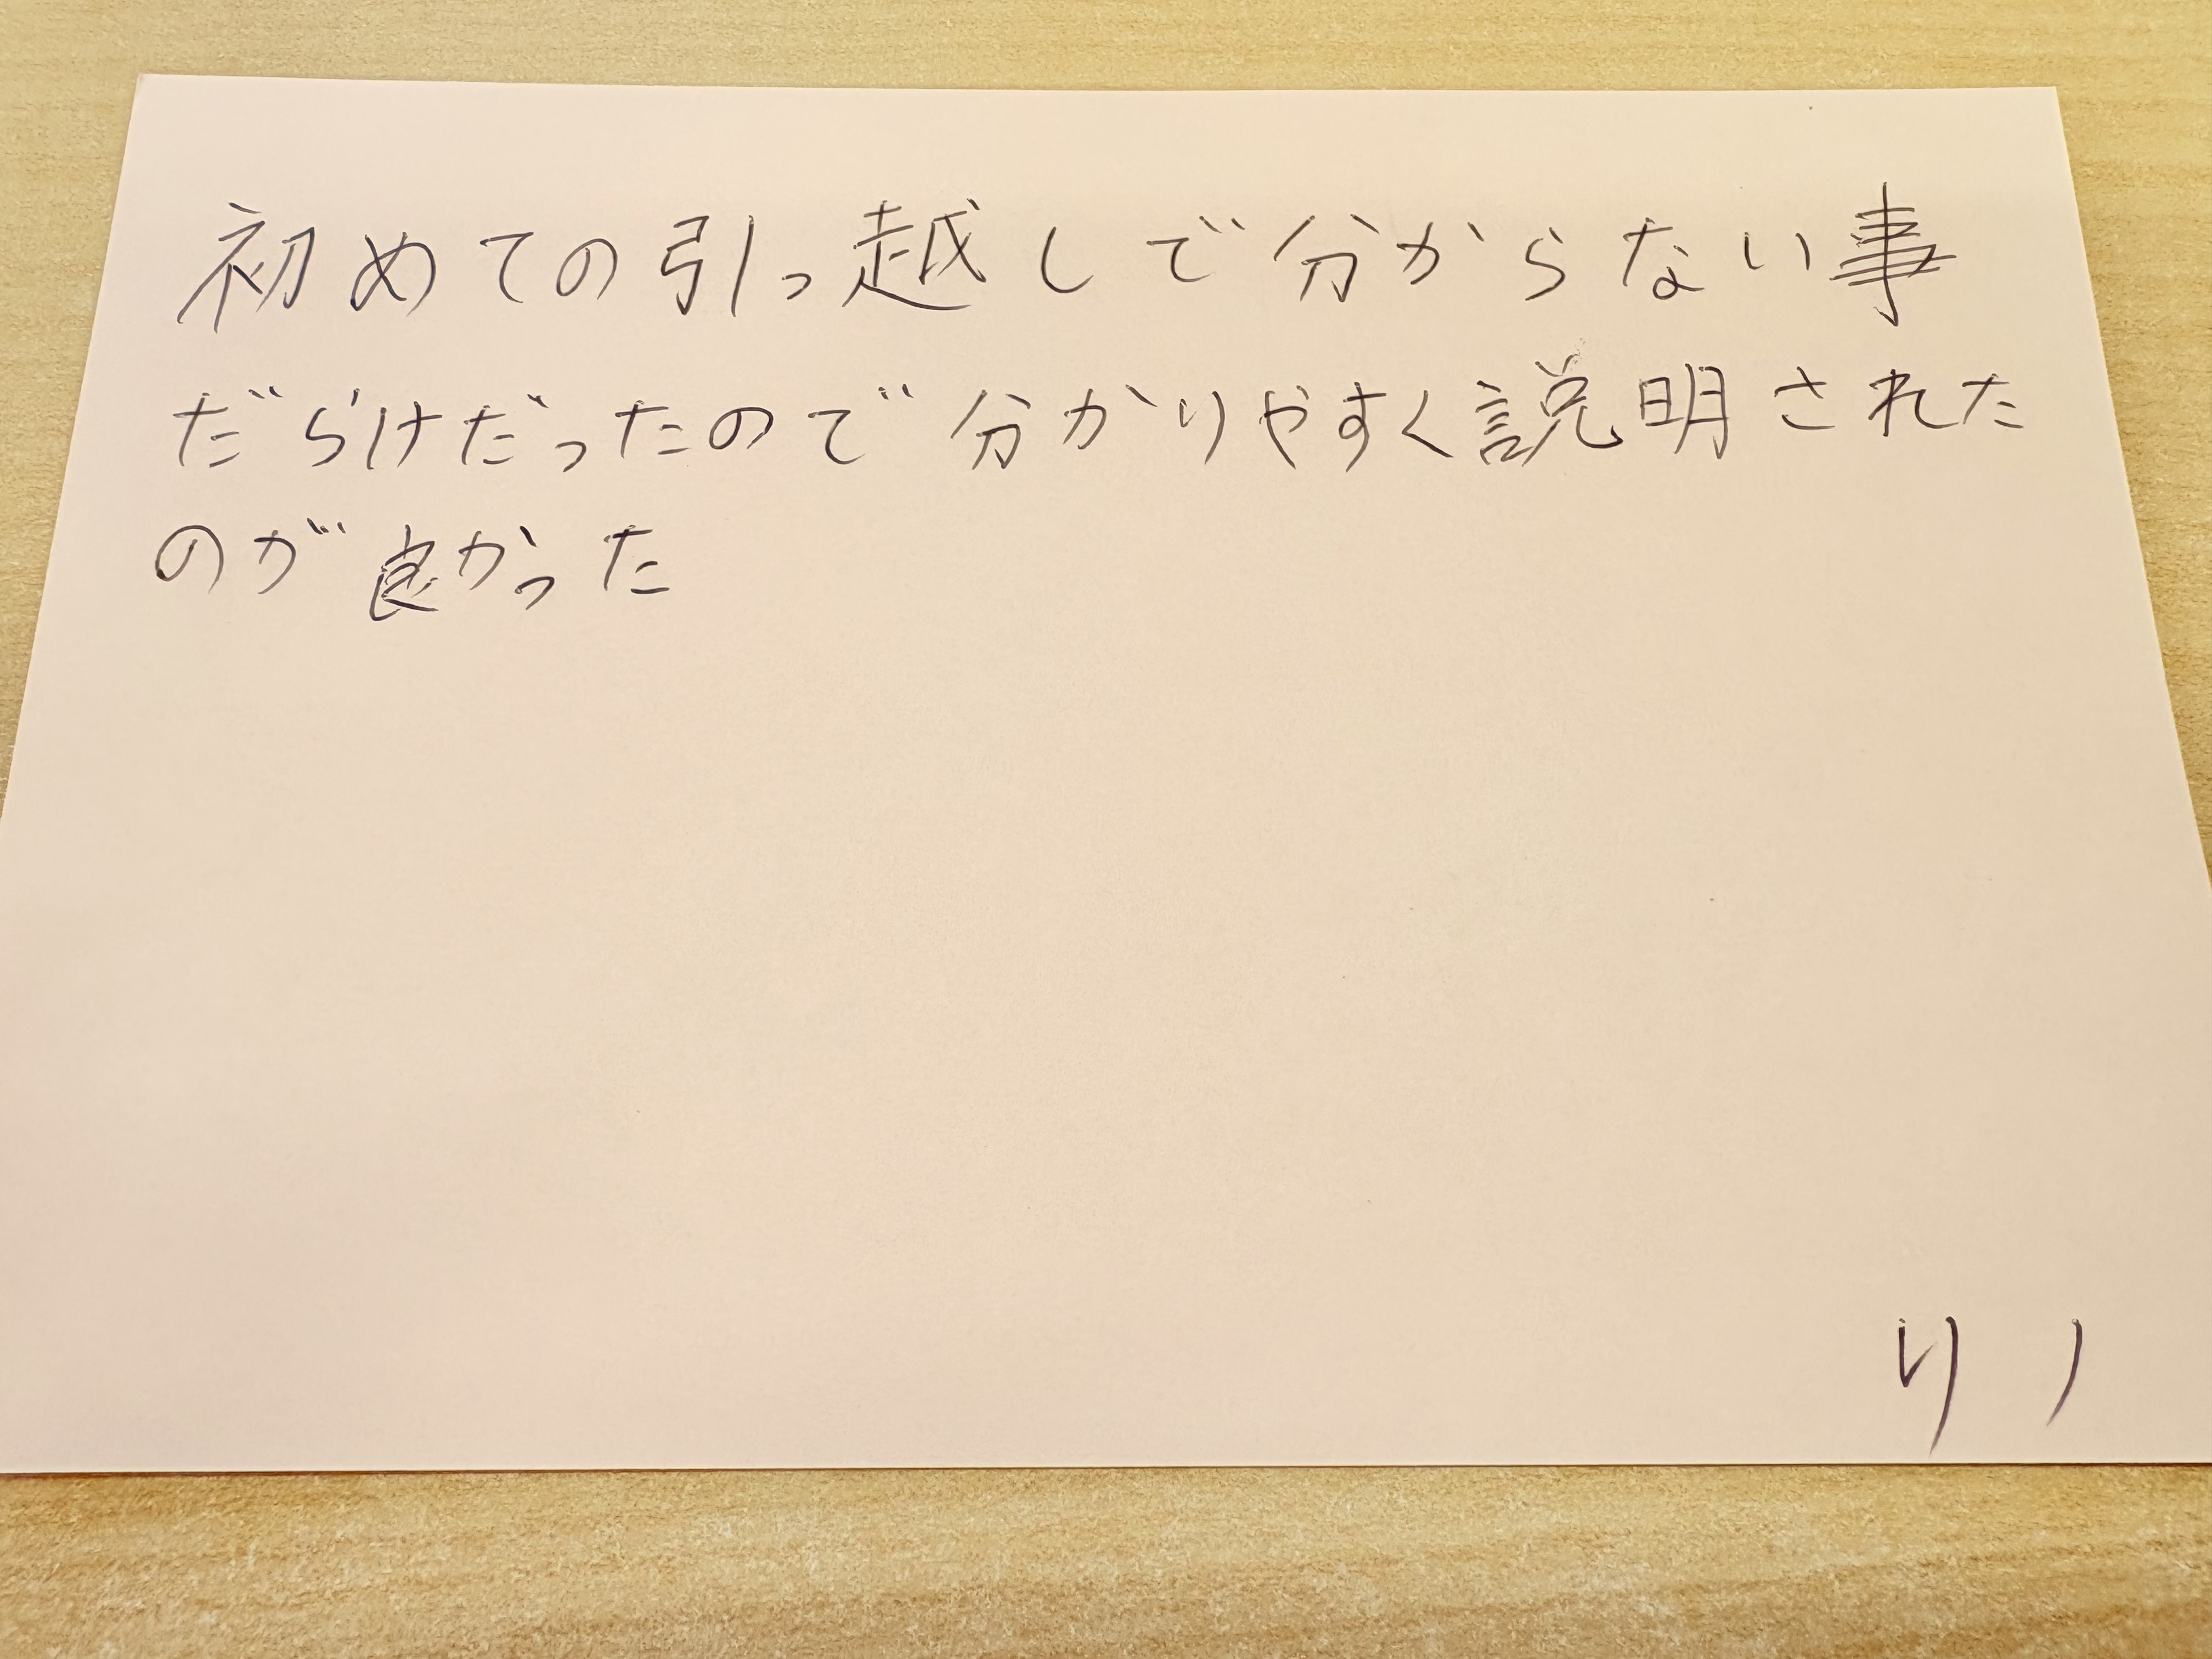 初めての引っ越しで分からない事
だらけだったので分かりやすく説明された
のが良かった
リノ